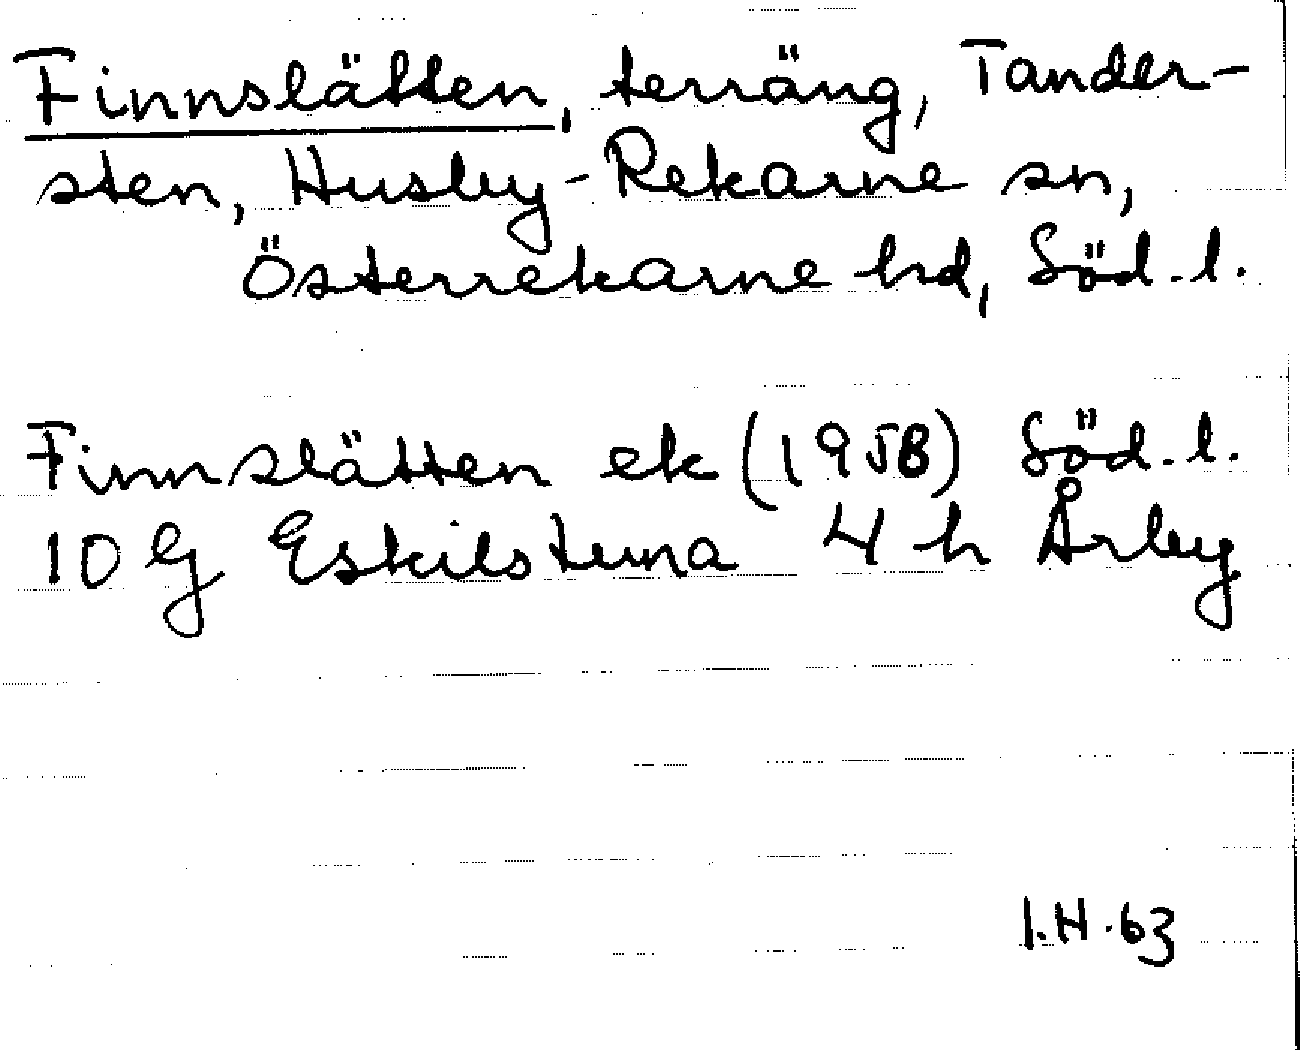 Finnslätten, terräng, Tander-
sten, Husby-Rekarne sn,
Österrekarne hd, Söd.l.
Finnslätten ek (1958) Söd.l.
10 G Eskilstuna 4 h Årby
I.H.63